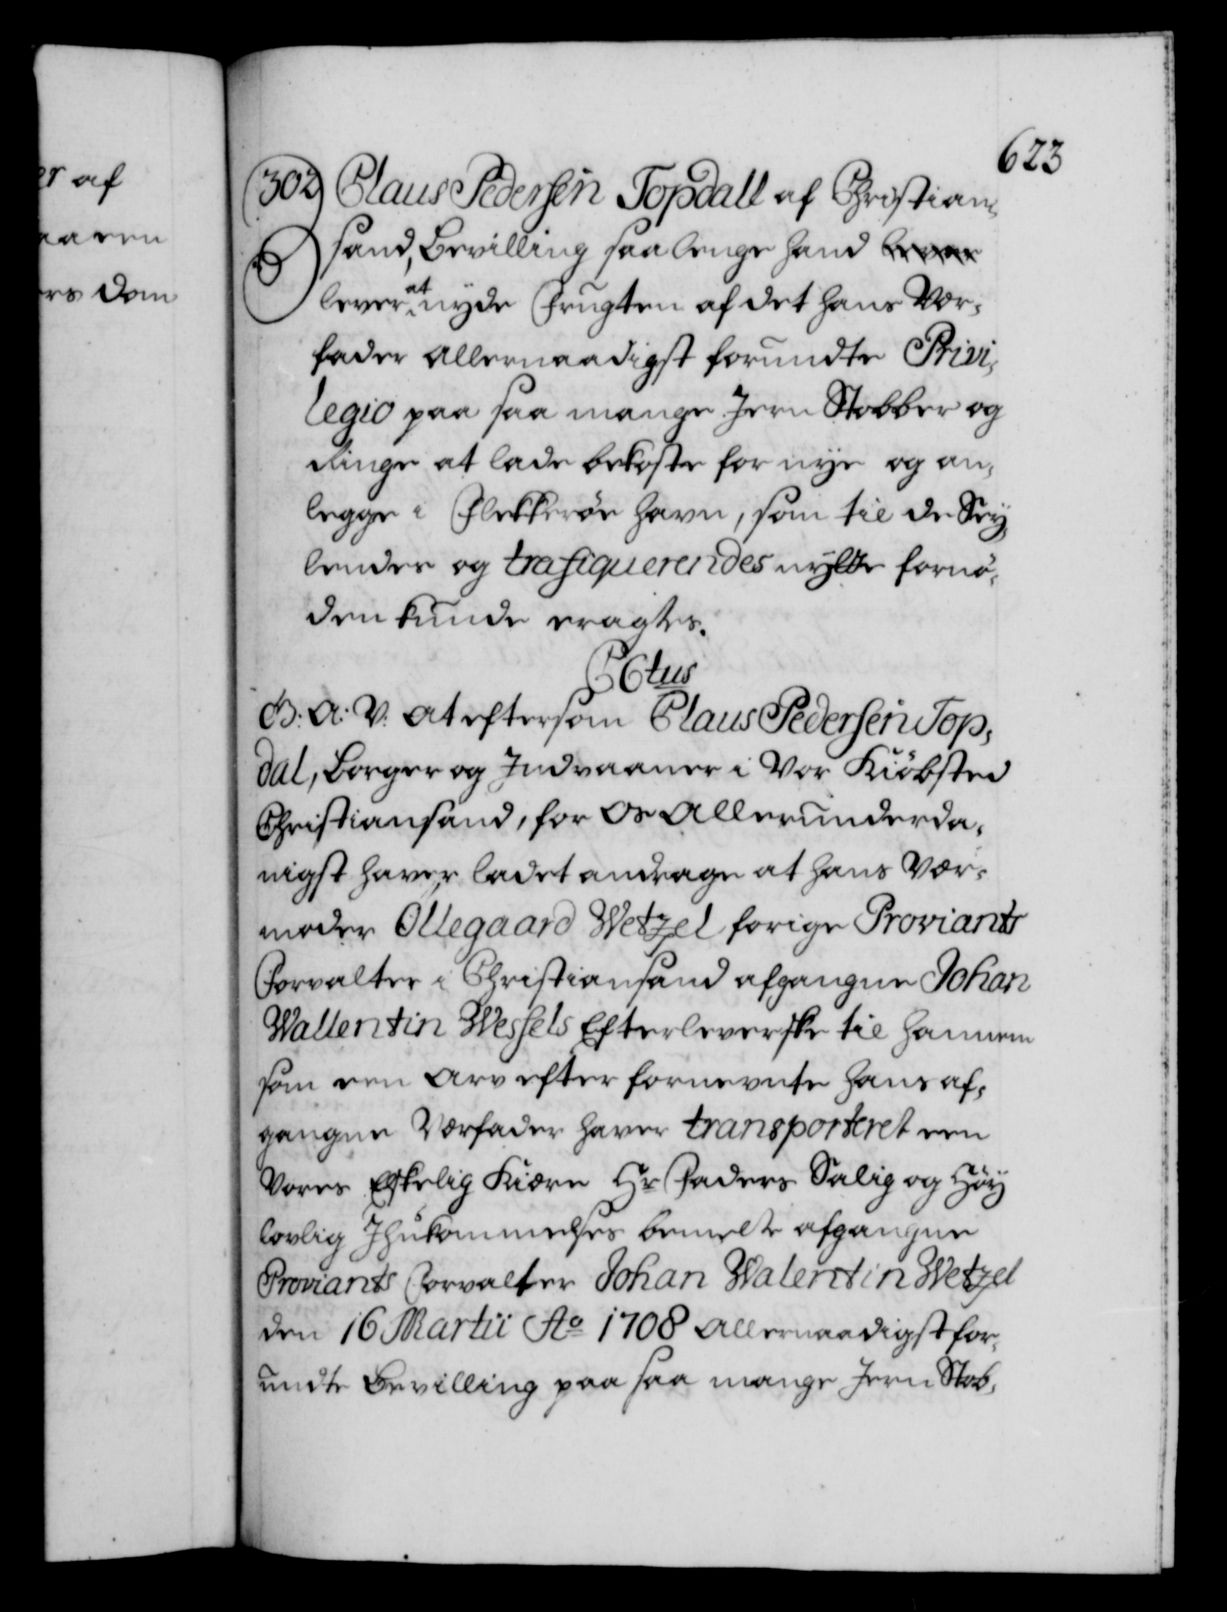 623
er af
aaren
ers dom
302 Claus Pedersen Topdall af Christian,
sand, Bevilling saa lenge hand lever
lever at nyde Frugten af det hans Vær,
fader Allernaadigst forundte Privi,
legio paa saa mange Jern Stobber og
Ringe at lade bekoste for nye og an,
legge i Flekkerøe Havn, som til de Sey,
lendes og trafiquerendes nytte fornø,
den kunde eragtes.
CCtus
G: A: V: At eftersom Claus Pedersen Top,
dal, Borger og Indvaaner i Vor Kiøbsted
Christiansand, for Os Allerunderda,
nigst haver ladet andrage at hans Vær,
moder Ollegaard Wetzel forige Proviants
Forvalter i Christiansand afgangne Johan
Wallentin Wessels Efterleverske til hannem
som een Arv efter fornevnte hans af,
gangne Værfader haver transporteret een
Vores Elskelig Kiære Hr Faders Salig og Høy
lovlig Ihukommelses bemelte afgangne
Proviants Forvalter Johan Walentin Wetzel
den 16 Martii Ao 1708 Allernaadigst for,
undte Bevilling paa saa mange Jern Stob,